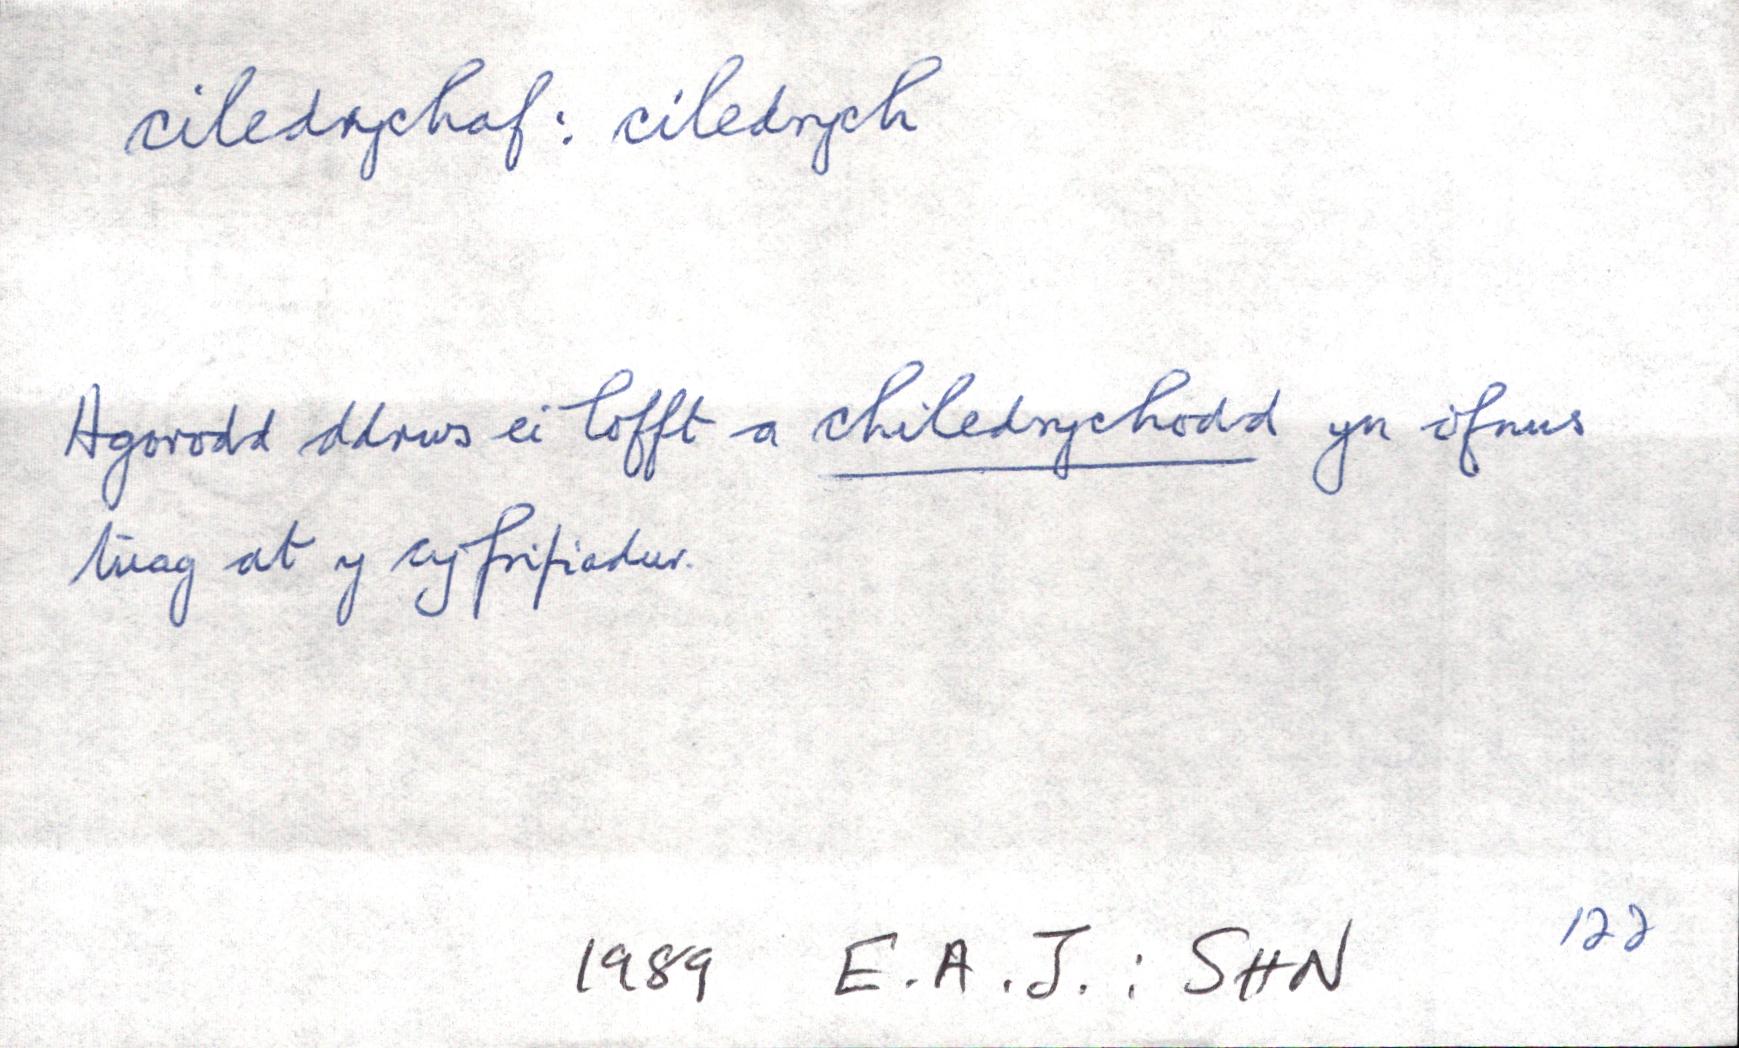 ciledrychaf: ciledrych
Agorodd ddrws ei lofft a chiledrychodd yn ofnus
tuag at y cyfrifiadur.
1989 E.A.J.: SHN 122